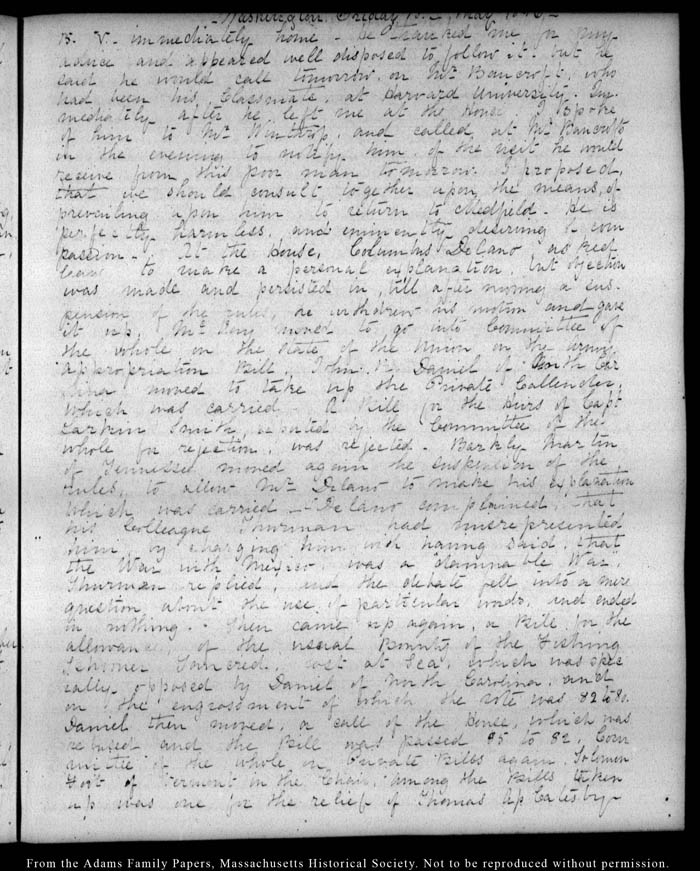 Washington Friday 15. May 1846
15. V. immediately home - He thanked me for my
advice and appeared well disposed to follow it. but he
said he would call tomorrow, on Mr. Bancroft, who
had been his Classmate, at Harvard University. Im-
mediately after he left me at the House, I spoke
of him to Mr Winthrop, and called, at Mr Bancroft's
in the evening to notify him of the visit he would
receive from this poor man tomorrow. I proposed,
that we should consult together upon the means, of
prevailing upon him to return to Medfield - He is
perfectly harmless, and eminently deserving of com
passion - At the House, Columbus Delano asked
leave to make a personal explanation, but objection
was made and persisted in, till after moving a sus-
pension of the rules, he withdrew his motion and gave
it up. Mr moved to go into Committee of
the whole on the state of the Union on the army
appropriation Bill, John R. Daniel of North Car
olina moved to take up the Private Callender,
which was carried - A Bill for the Heirs of Capt
Larkin Smith, reported by the Committee of the
whole for rejection, was rejected - Barkly Martin
of Tennessee moved again the suspension of the
rules, to allow Mr Delano to make his explanation
which was carried - Delano complained, that
his Colleague Thurman had misrepresented
him by charging him with having said, that
the War with Mexico, was a damnable War.
Thurman replied, and the debate fell into a mere
question about the use, of particular words, and ended
in nothing - Then came up again, a Bill for the
allowance, of the usual Bounty of the Fishing
Schooner Tancred, lost at Sea, which was spec
ially opposed by Daniel of North Carolina, and
on the engrossment of which the vote was 82 to 80.
Daniel then moved, a call of the House, which was
refused and the Bill was passed 85 to 82, Com
mittee of the whole on Private Bills again Solomon
Foot of Vermont in the Chair, among the Bills taken
up was one for the relief of Thomas Ap Catesby
From the Adams Family Papers, Massachusetts Historical Society. Not to be reproduced without permission.